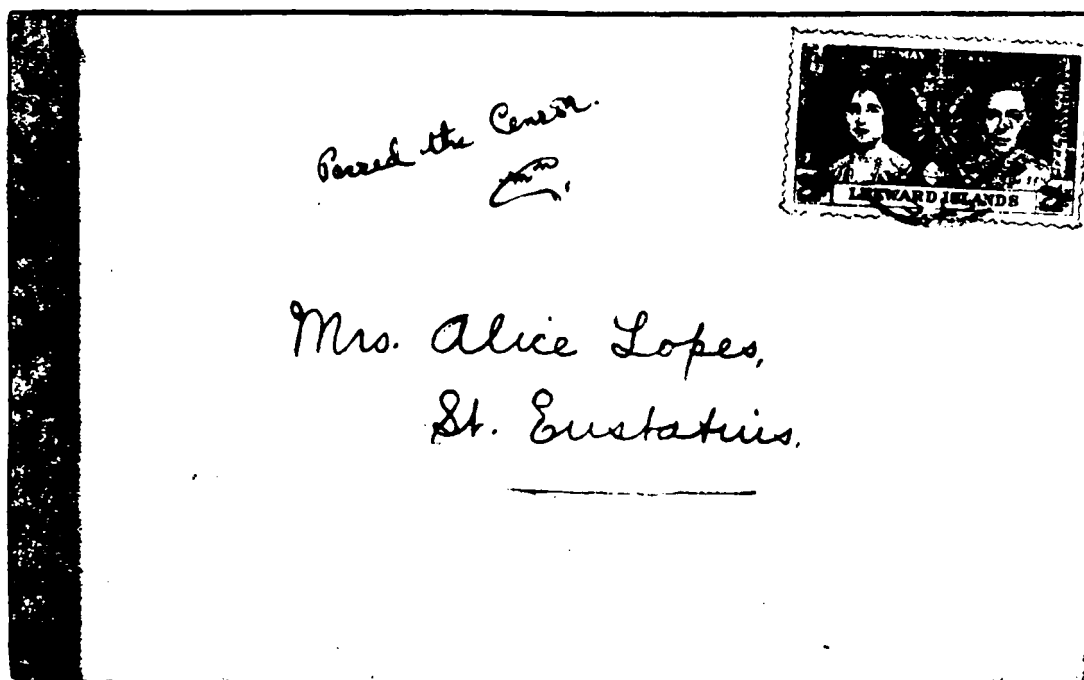 Passed the Censor.
LEEWARD ISLANDS
Mrs. Alice Lopes,
St. Eustatius.